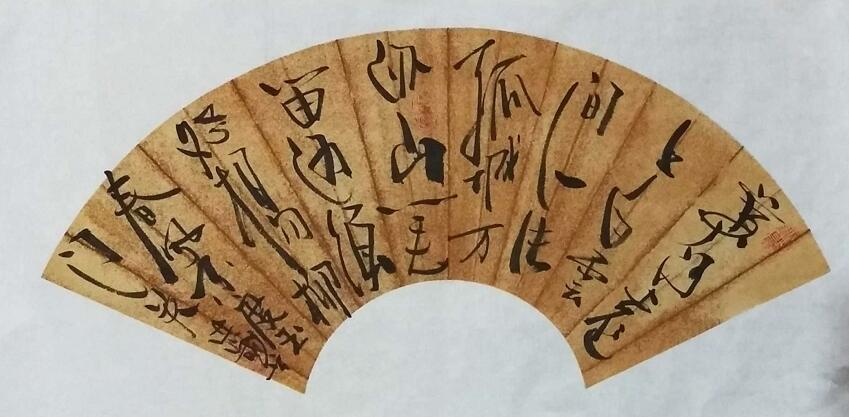 黄河远
上白云
间一片
孤城万
仞山羌
笛何须
怨杨柳
春风不度玉
门关